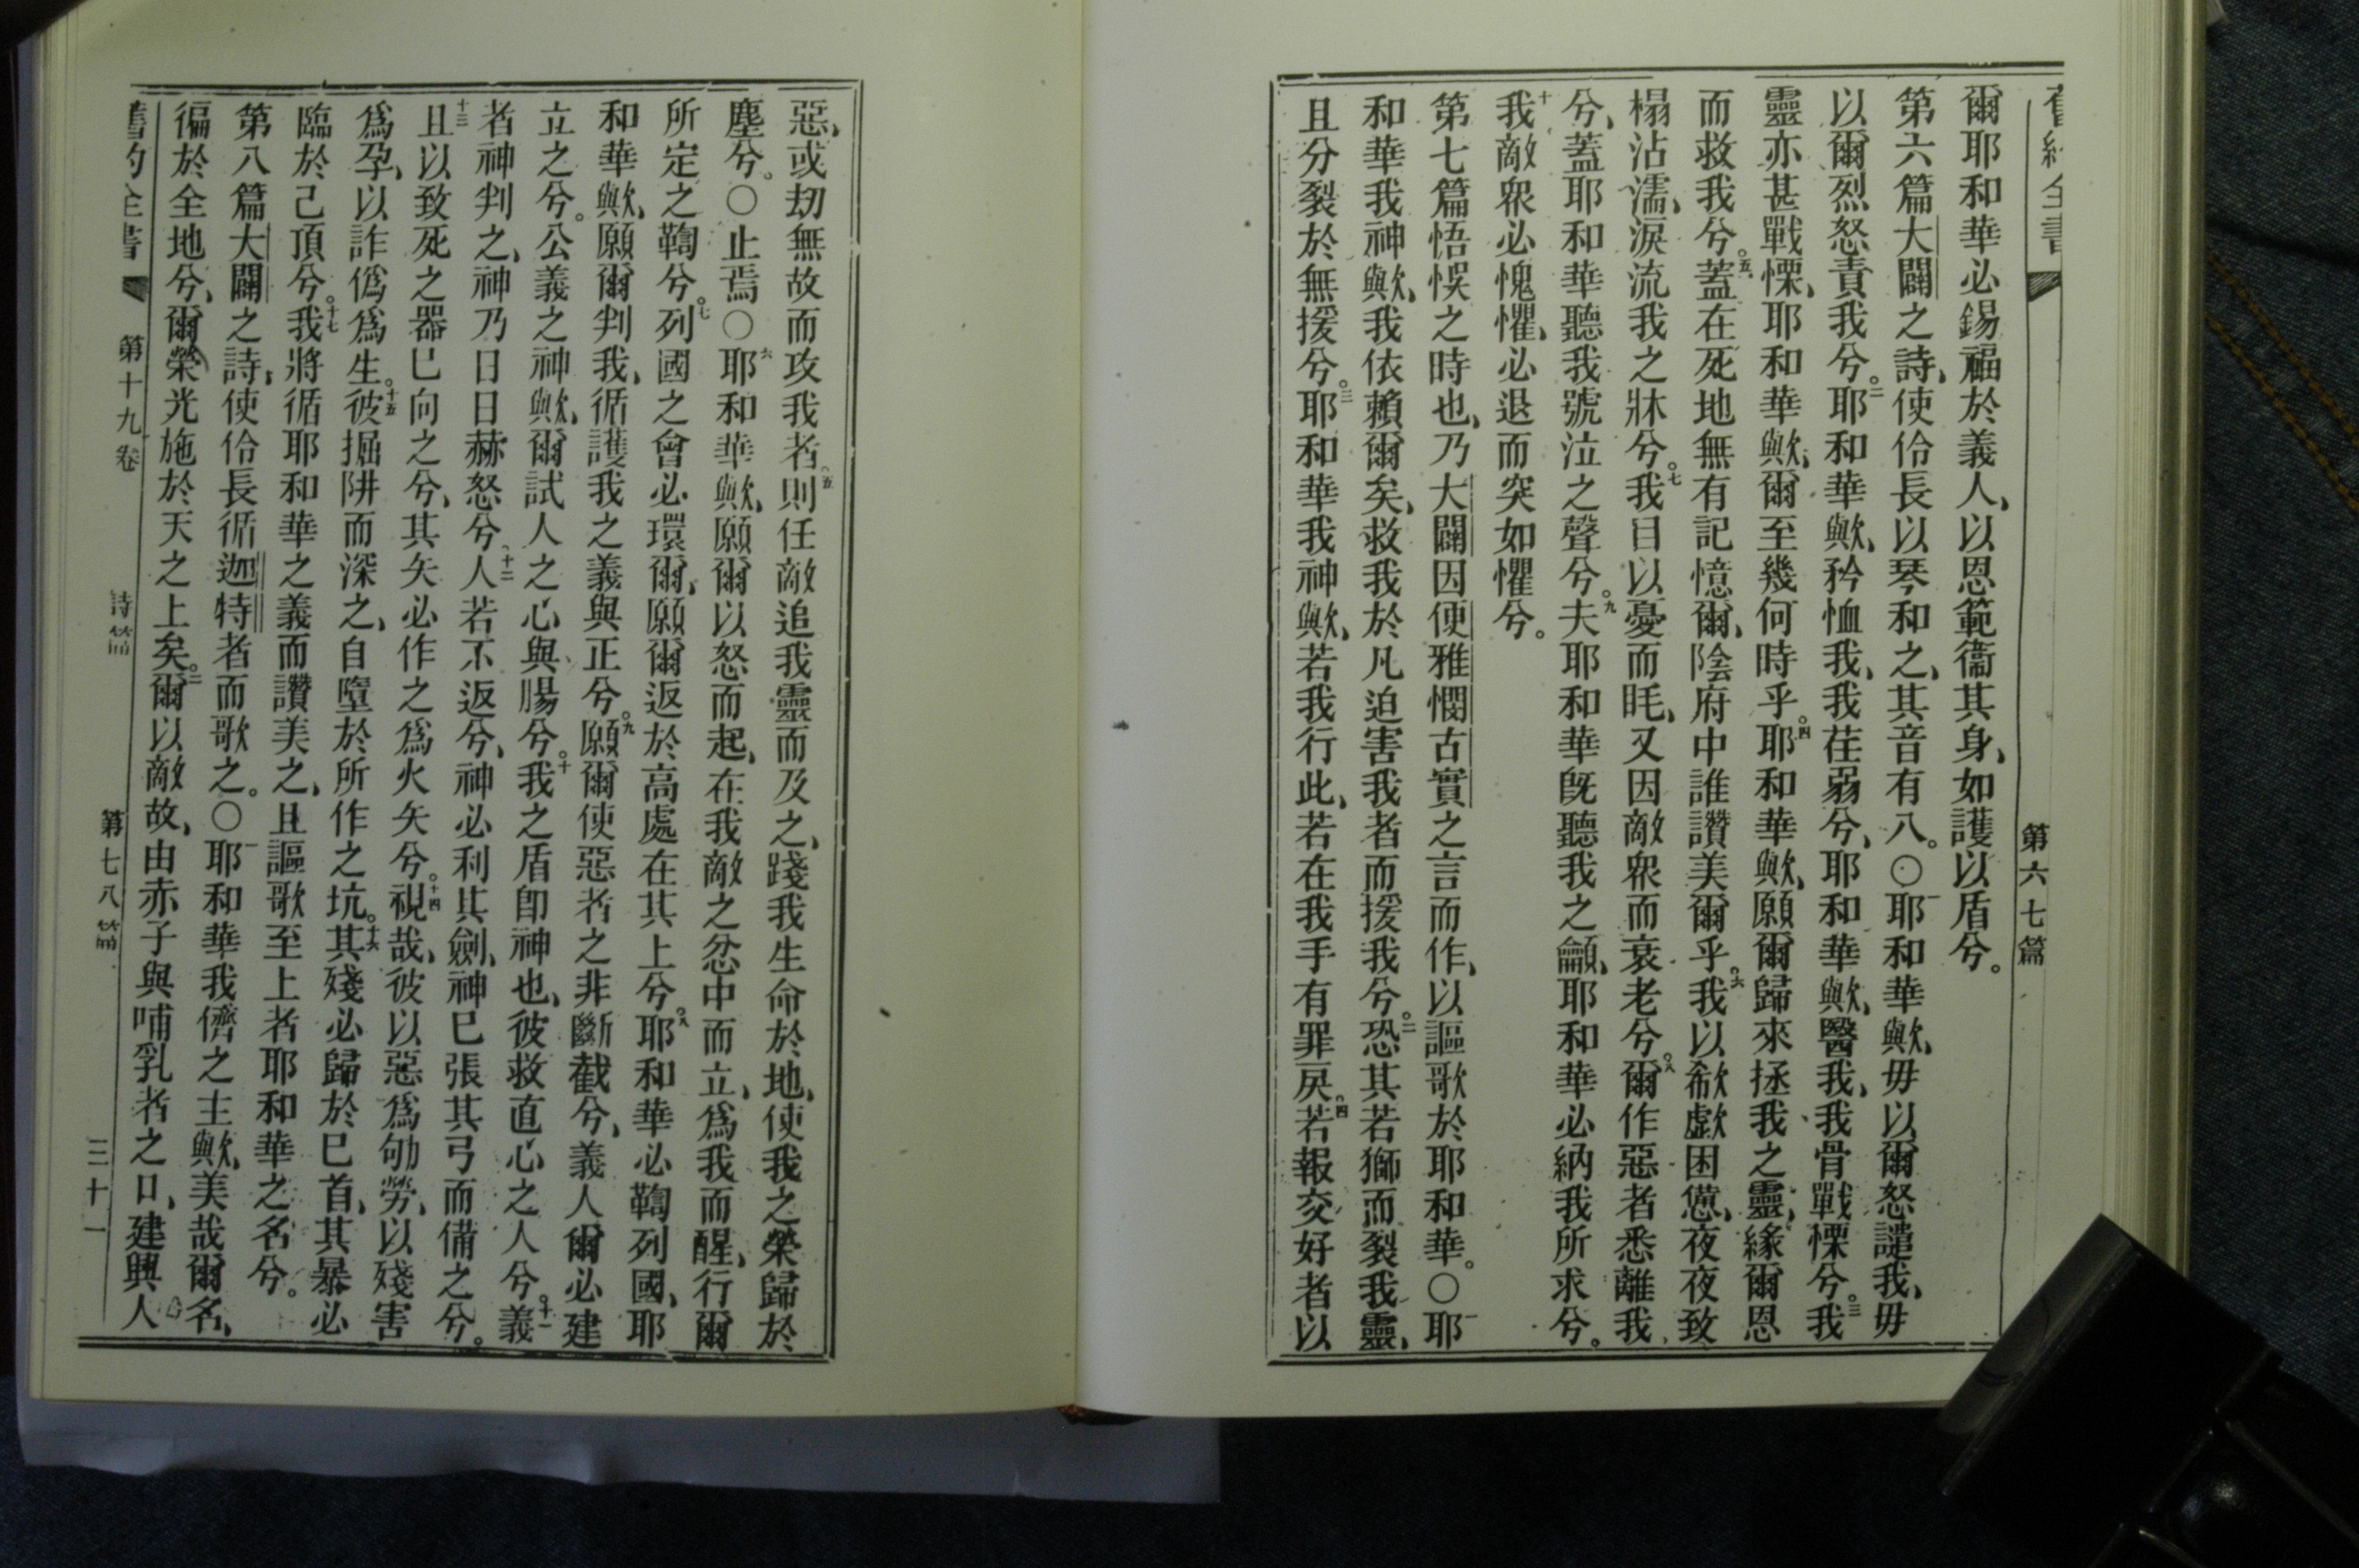 舊約全書
第六七篇
爾耶和華必錫福於義人、以恩範衞其身、如護以盾兮。
第六篇大闢之詩、使伶長以琴和之、其音有八。○一耶和華歟、毋以爾怒譴我、毋
以爾烈怒責我兮。二耶和華歟、矜恤我、我荏弱兮、耶和華歟、醫我、我骨戰慄兮。三我
靈亦甚戰慄、耶和華歟、爾至幾何時乎。四耶和華歟、願爾歸來拯我之靈、緣爾恩
而救我兮。五蓋在死地無有記憶爾、陰府中誰讚美爾乎。六我以欷歔困憊、夜夜致
榻沾濡、淚流我之牀兮。七我目以憂而眊、又因敵衆而衰老兮。八爾作惡者悉離我
兮、蓋耶和華聽我號泣之聲兮。九夫耶和華旣聽我之龥、耶和華必納我所求兮。
十我敵衆必愧懼、必退而突如懼兮。
第七篇悟悞之時也、乃大闢因便雅憫古實之言而作、以謳歌於耶和華。○一耶
和華我神歟、我依賴爾矣、救我於凡迫害我者而援我兮。二恐其若獅而裂我靈、
且分裂於無援兮。三耶和華我神歟、若我行此、若在我手有罪戾。四若報交好者以
惡、或刧無故而攻我者、五則任敵追我靈而及之、踐我生命於地、使我之榮歸於
塵兮。○止焉○六耶和華歟、願爾以怒而起、在我敵之忿中而立、爲我而醒、行爾
所定之鞫兮。七列國之會必環爾、願爾返於高處在其上兮。八耶和華必鞫列國、耶
和華歟、願爾判我、循護我之義與正兮。九願爾使惡者之非斷截兮、義人爾必建
立之兮。公義之神歟、爾試人之心與腸兮。十我之盾卽神也、彼救直心之人兮。十一義
者神判之、神乃日日赫怒兮。十二人若不返兮、神必利其劍、神已張其弓而備之兮。
十三且以致死之器已向之兮、其矢必作之爲火矢兮。十四視哉、彼以惡爲劬勞、以殘害
爲孕、以詐僞爲生。十五彼掘阱而深之、自墮於所作之坑。十六其殘必歸於已首、其暴必
臨於己頂兮。十七我將循耶和華之義而讚美之、且謳歌至上者耶和華之名兮。
第八篇大闢之詩、使伶長循迦特者而歌之。○一耶和華我儕之主歟、美哉爾名、
徧於全地兮、爾榮光施於天之上矣。二爾以敵故、由赤子與哺乳者之口、建興人
舊約全書
第十九卷
詩篇
第七八篇
三十一